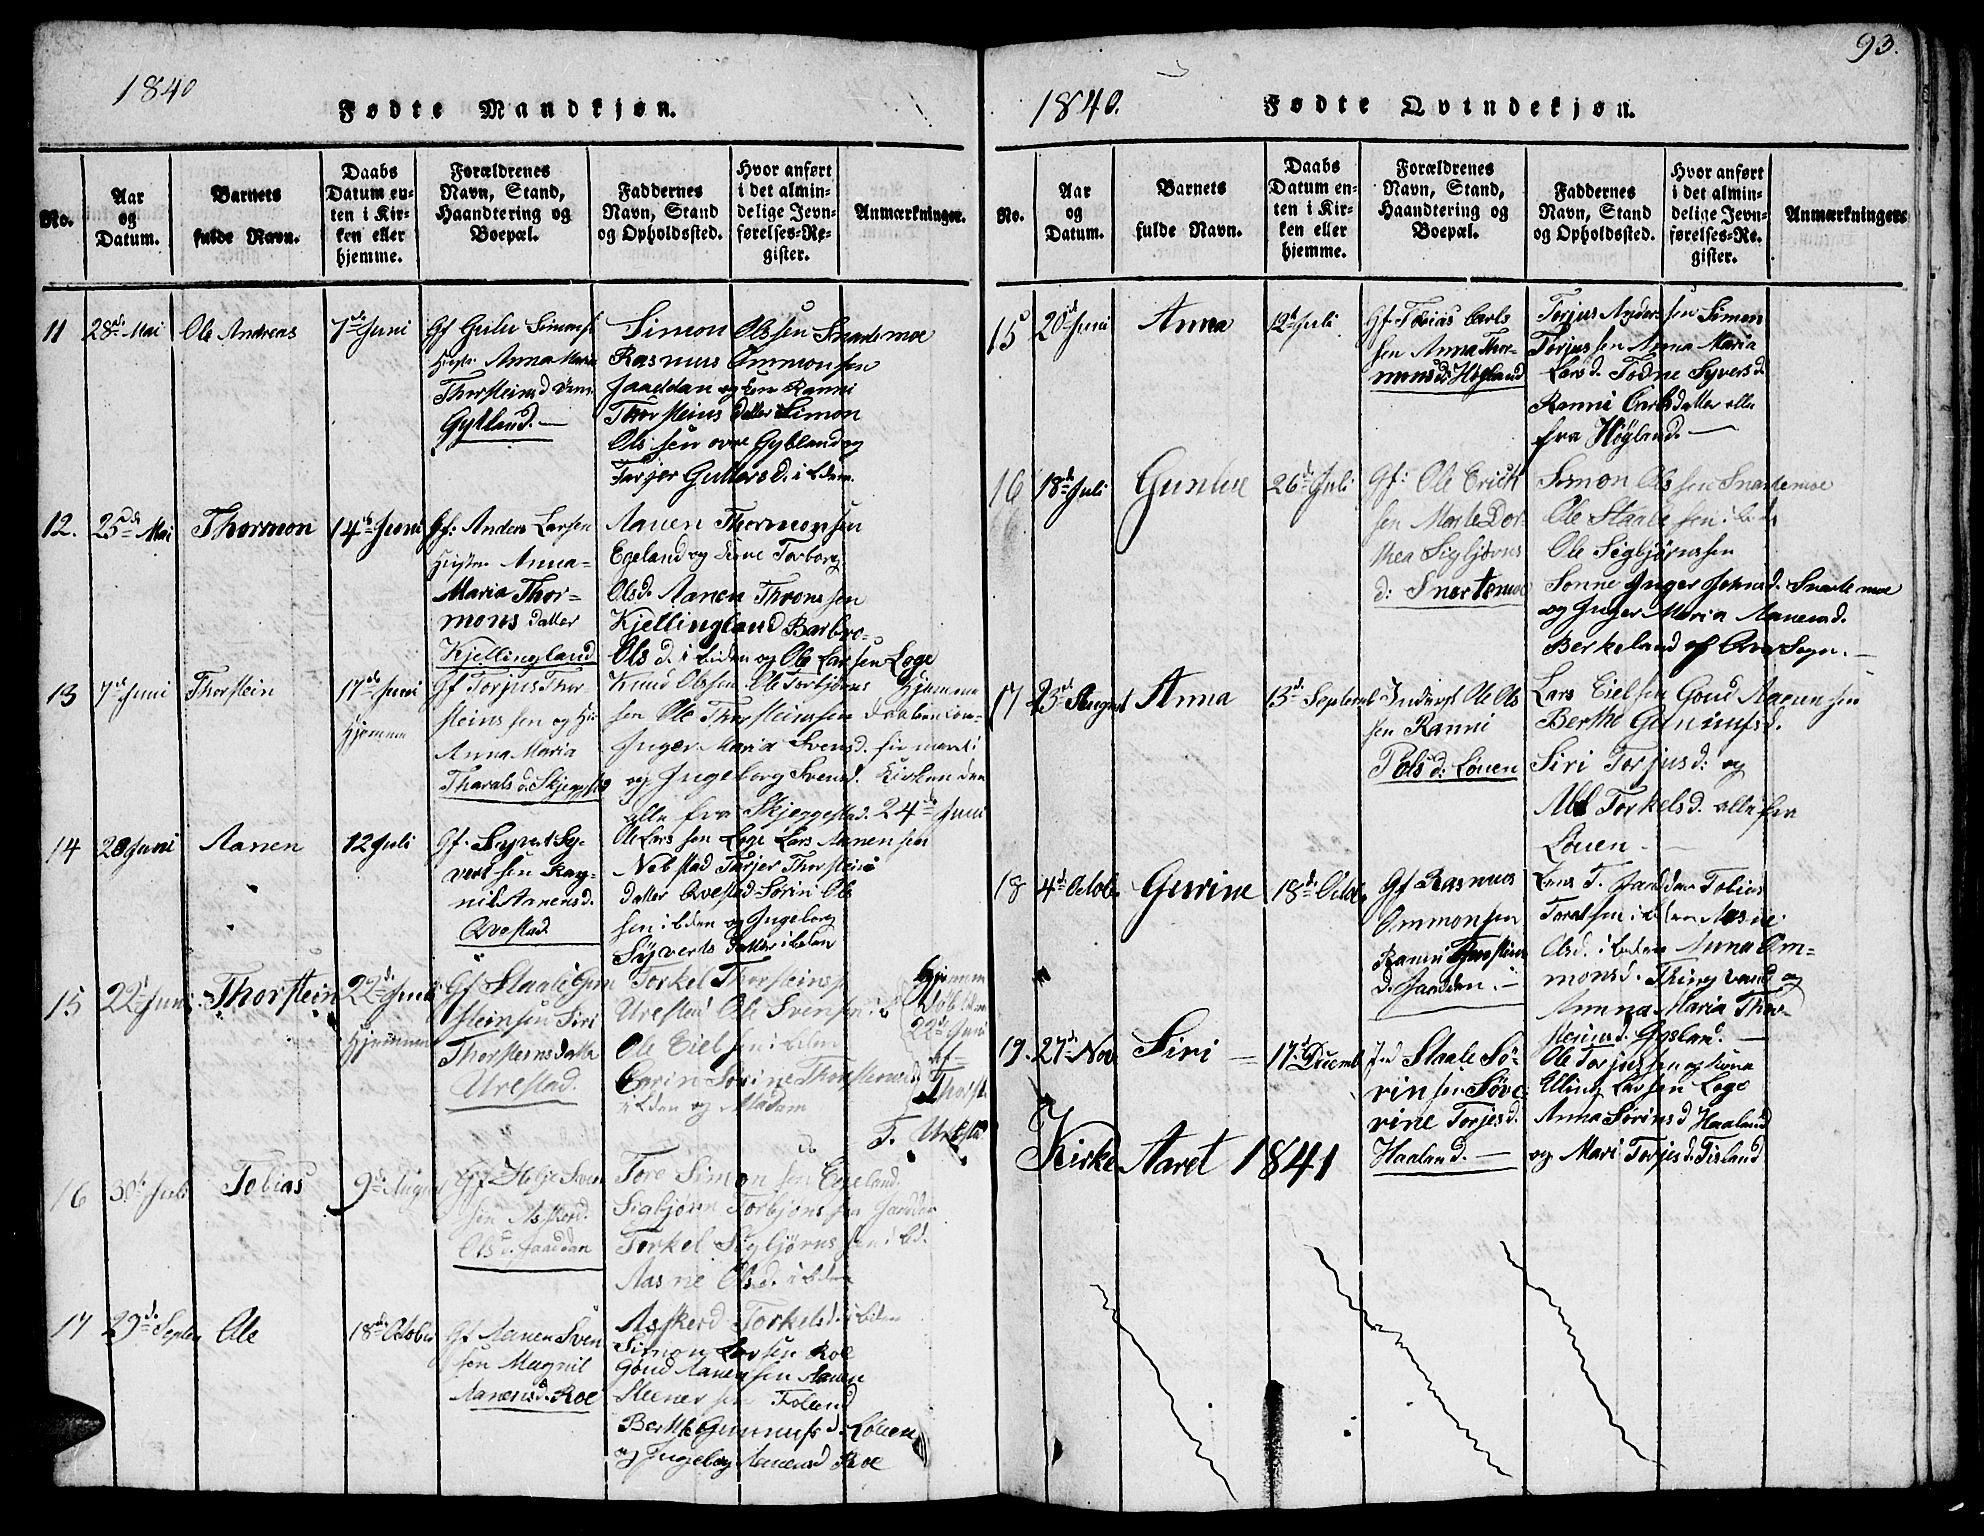 1840
Fødte Mandkjøn.
No.
Aar
og
Datum.
Barnets
fulde Navn.
Daabs
Datum en-
ten i Kir-
ken eller
hjemme.
Forældrenes
Navn, Stand,
Haandtering og
Boepæl.
Faddernes
Navn, Stand
og Opholdssted.
Hvor anført
i det almin-
delige Jevn-
førelses-Re-
gister.
Anmærkninger.
11
28de Mai
Ole Andreas
7de Juni
Gf
Anna Maria
Thorsteinsd
Gyland.
Simon Olssen Snartemoe
Rasmus Ommonsen
Jaaddan og Kone Ranni
Thorsteins datter Simon
Ols sen øvre Gyland og
Tarjer Guttorsd. i bdem.
12.
25de Mai
Thormon
14de Juni
Gf: Anders Larsen
Hustr. Anna-
Maria Thor-
mons datter
Kjellingland
Aanen Thormonsen
Egeland og Torborg
Olsd. Aanen Throns sen
Kjellingland Barbro-
Ols d. i biden og Ole Larsen Loge
13
7de Juni
Thorstein
17de Juni
Hjemme
Gf Torjus Thor
steins sen og Hu
Anna Maria
Tharals d. Skjeggestad
Knud Olssen Ole Torbjørns
sen Ole Thorsteinssen
Inger Maria Svensd.
og Ingeborg Svensd.
alle fra Skjeggestad.
Hjemme
Daaben
firmeret i
Kirken den
24de Juni
14
20 Juni
Aanen
12 Juli
Gf. Syvert Sy-
vert sen Rag-
nil Aanensd.
Qvestad
Ole Lars sen Loge Lars Aanen sen
Nebstad Tarjer Thorsteins
datter Qvestad Sørin Ole
sen i biden og Ingeborg
Syverts datter i biden
15
22de Juni
Thorstein
22de Juni
Hjemme
Gf Staale Gun
steinsen Siri
Thorsteins datter
Urestad.
Torkel Thorsteins
Urestad Ole Svensen i b
Ole Eiel sen i biden
Carin Sørine Thorsteinsd
i biden og Madam
T. Urestad
Hjemme
Døbt den
22de Juni
af
Thorst.
16
30te Juli
Tobias
9de August
Gf Helje Sven
sen Asskerd.
Olsd. Jaaddan
Tore Simon sen Egeland.
Sigbjørn Torbjøns sen Jaddan
Torkel Sigbjørns sen i bd.
Aasne Olsd. i biden
Asskerd Torkelsd. i biden
17
29de Septem
Ole
18de Octob
Gf Aanen Sven
sen Magnil
Aanensd. Roe
Simon Larsen Roe
Gond Aanensen Aanen
Steener sen Foland
Berthe Gunnufs d. Louen
og Ingeborg Aanensd Roe
93.
1840.
Fødte Qvindekjøn.
No.
Aar
og
Datum.
Barnets
fulde Navn.
Daabs
Datum en-
ten i Kir-
ken eller
hjemme.
Forældrenes
Navn, Stand,
Haandtering og
Boepæl.
Faddernes
Navn, Stand
og Opholdssted.
Hvor anført
i det almin-
delige Jevn-
førelses-Re-
gister.
Anmærkninger
15
20de Juni
Anna
12te Juli
Gf Tobias Carls
sen Anna Thor-
monsd: Høgland
Torjus Anders sen Simon
Torjussen Anna Maria
Larsd. Todne Syversd.
Ranni Carlsdatter alle
fra Høgland.
16
18de Juli
26de Juli
Gf: Ole Erick
sen Marte Dor-
thea Sigbjørns
d: Snartemoe
Simon Ols sen Snartemoe
Ole Staale sen i bide
Ole Sigbjørnssen
Sonne Inger Johnsd. Snartemoe
og Inger Maria Aanensd.
Berkeland af Qvas Sogn.
17
23de August
Anna
13de Septemb
Inderst Ole Ols
sen Ranni
Polsd: Louen
Lars Eielsen Goud Aanensen
Berthe Gunnufsd.
Siri Torjusd: og
Torkelsd. alle fra
Louen.
18
4de Octob
Gurine
18de Octob
Gf Rasmus
Ommonsen
Ranni Thorsteins
d. Jaaddan.
Lars T. Jaaddan Tobias
Toresen i biden Aasne
Olsd. i biden Anna Om-
monsd. Thingvand og
Amna Maria Thor-
steinsd. Gysland.
19.
27de Nov
Siri
17de Decemb
Ind Staale Sø-
rinsen Søve-
rine Torjesd.
Haaland.
Ole Torjussen og Kona
Elling Larsen Loge
Anna Sørinsd Haaland
og Mari Torjesd. Fisland
Kirke Aaret 1841